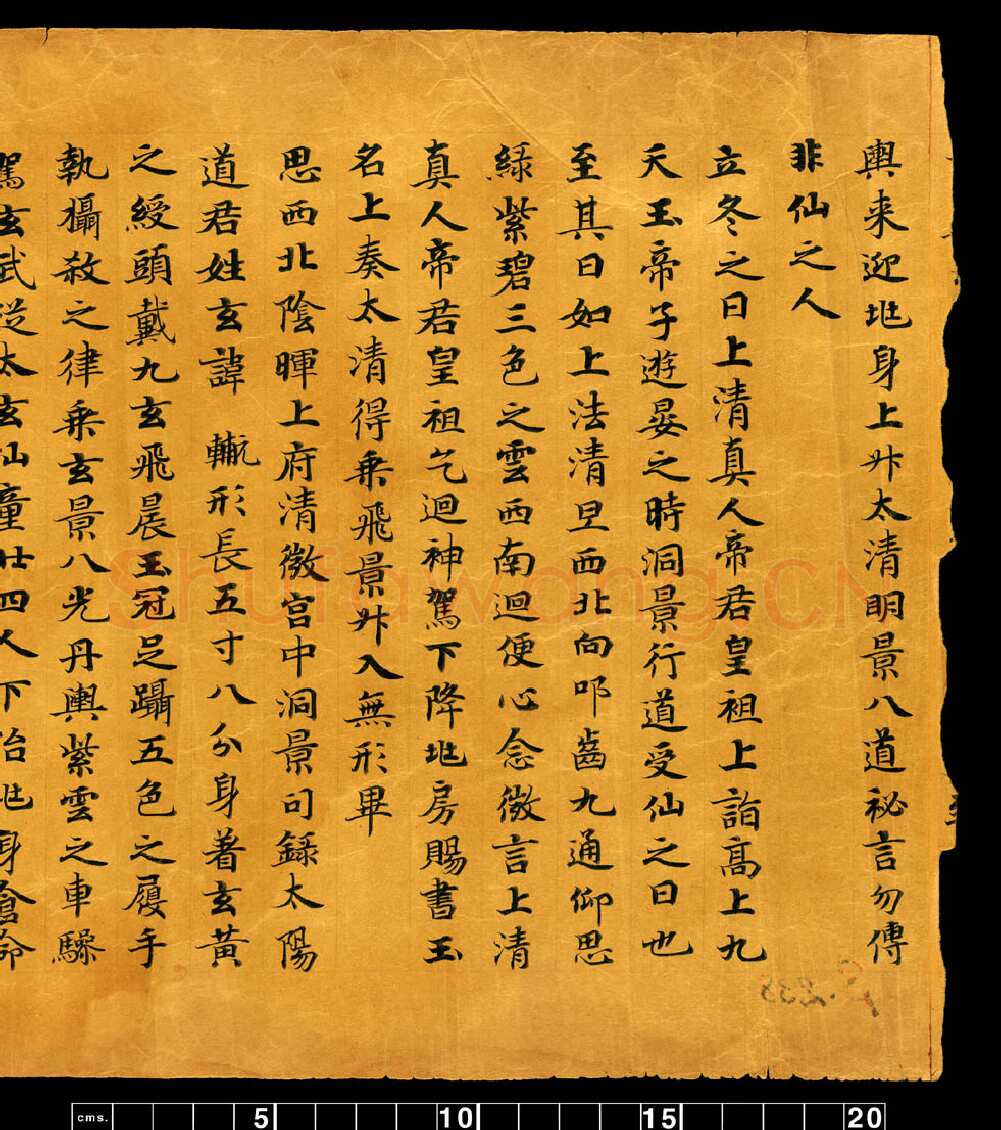 輿来迎兆身上升太清明景八道祕言勿傳
非仙之人
立冬之日上清真人帝君皇祖上詣高上九
天玉帝子遊晏之時洞景行道受仙之日也
至其日如上法清旦西北向叩齒九通仰思
綠紫碧三色之雲西南迴便心念微言上清
真人帝君皇祖乞迴神駕下降兆房賜書玉
名上奏太清得乘飛景升入無形畢
思西北陰暉上府清微宮中洞景司錄太陽
道君姓玄諱 形長五寸八分身著玄黃
之綬頭戴九玄飛晨玉冠足躡五色之履手
執攝殺之律乘玄景八光丹輿紫雲之車驂
駕玄武從太玄仙童廿四人下治兆身命
shufawang.CN
cms. 5 10 15 20